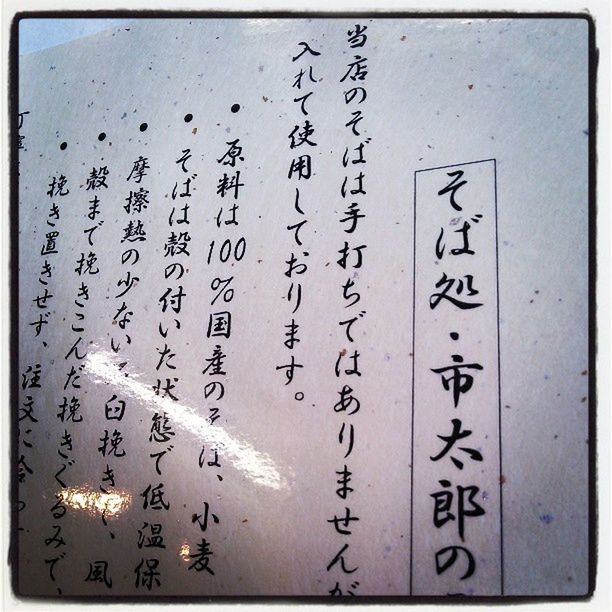 そば処・市太郎の
当店のそばは手打ちではありませんが
入れて使用しております。
・原料は100%国産のそば、小麦
・そばは殻の付いた状態で低温保
・摩擦熱の少ない石臼挽きで、風
・殻まで挽きこんだ挽きぐるみで、
・挽き置きせず、注文に合わ